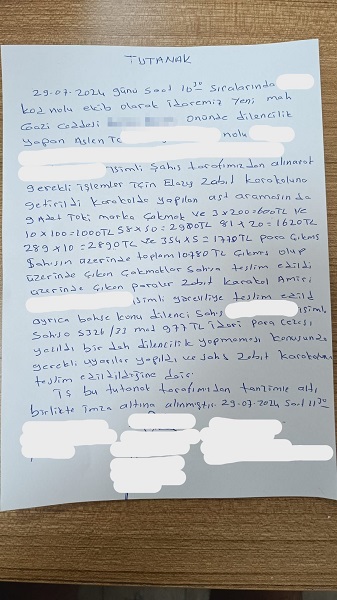 TUTANAK
29.07.2024 günü saat 10³⁰ sıralarında
kod nolu ekib olarak idaremiz Yeni mah
Gazi caddesi önünde dilencilik
yapan Aslen Tc nolu
isimli Şahıs tarafımızdan alınarak
gerekli işlemler için Elazığ Zabıt karakoluna
getirildi karakolda yapılan üst aramasında
9 Adet Toki marka Çakmak ve 3x200=600TL ve
10x100=1000TL 58x50=2900TL 81x20=1620TL
289x10=2890TL ve 354x5=1770TL para Çıkmış
Şahsın üzerinde toplam 10780TL Çıkmış olup
üzerinde Çıkan Çakmaklar Şahsa teslim edildi
üzerinde Çıkan paralar Zabıt karakol Amiri
isimli görevliye teslim edildi
ayrıca bahse konu dilenci Şahıs isimli
Şahsa 5326/33 mad 977TL İdari para Cezası
yazıldı bir dah dilencilik yapmaması konusunda
gerekli uyarılar yapıldı ve Şahıs Zabıt karakoluna
teslim edildiğine dair
İş bu tutanak tarafımızdan tanzimle altı
birlikte imza altına alınmıştır. 29.07.2024 Saat 11³⁰